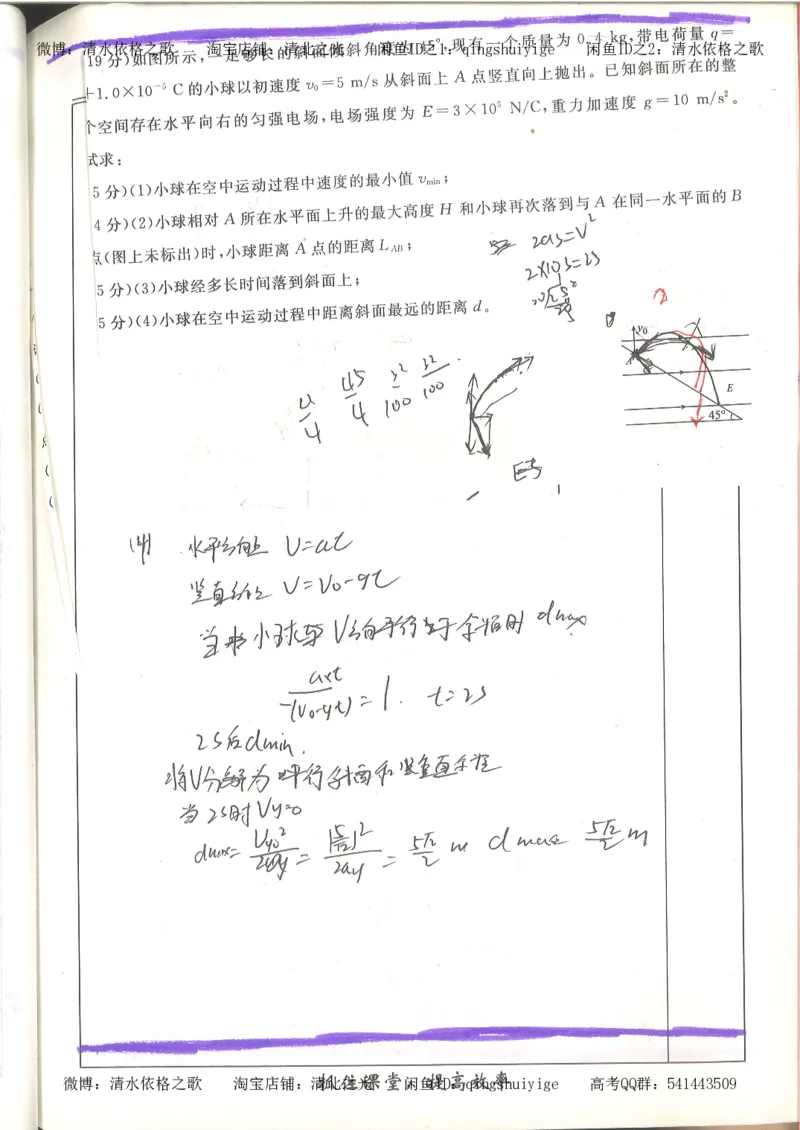 微博：清水依格之歌 淘宝店铺：清北之光 闲鱼ID之1：qingshuiyige 闲鱼ID之2：清水依格之歌
19分)如图所示,一足够长的斜面倾斜角度为45°,现有一个质量为0.4 kg,带电荷量q=
+1.0×10⁻⁵ C的小球以初速度v₀=5 m/s从斜面上A点竖直向上抛出。已知斜面所在的整
个空间存在水平向右的匀强电场,电场强度为E=3×10⁵ N/C,重力加速度g=10 m/s²。
试求：
5分)(1)小球在空中运动过程中速度的最小值vmin；
4分)(2)小球相对A所在水平面上升的最大高度H和小球再次落到与A在同一水平面的B
点(图上未标出)时,小球距离A点的距离LAB；
5分)(3)小球经多长时间落到斜面上；
5分)(4)小球在空中运动过程中距离斜面最远的距离d。
2as=V²
2×10s=25
v₀
A
E
45°
4/4 45/4 3²/100 3²/100
(4) 水平方向上 V=at
竖直方向上 V=V₀-gt
当小球与V方向平行于斜面时dmax
axt/-(V₀-gt)=1. t=2s
2s后dmin.
将V分解为平行斜面和垂直斜面
当2s时Vy=0
dmax=Vy₀²/2ay=|5/√2|²/2ay=5√2/2 m dmax 5√2/2 m
微博：清水依格之歌 淘宝店铺：清北之光 闲鱼ID：qingshuiyige 高考QQ群：541443509
抓住课堂，提高效率